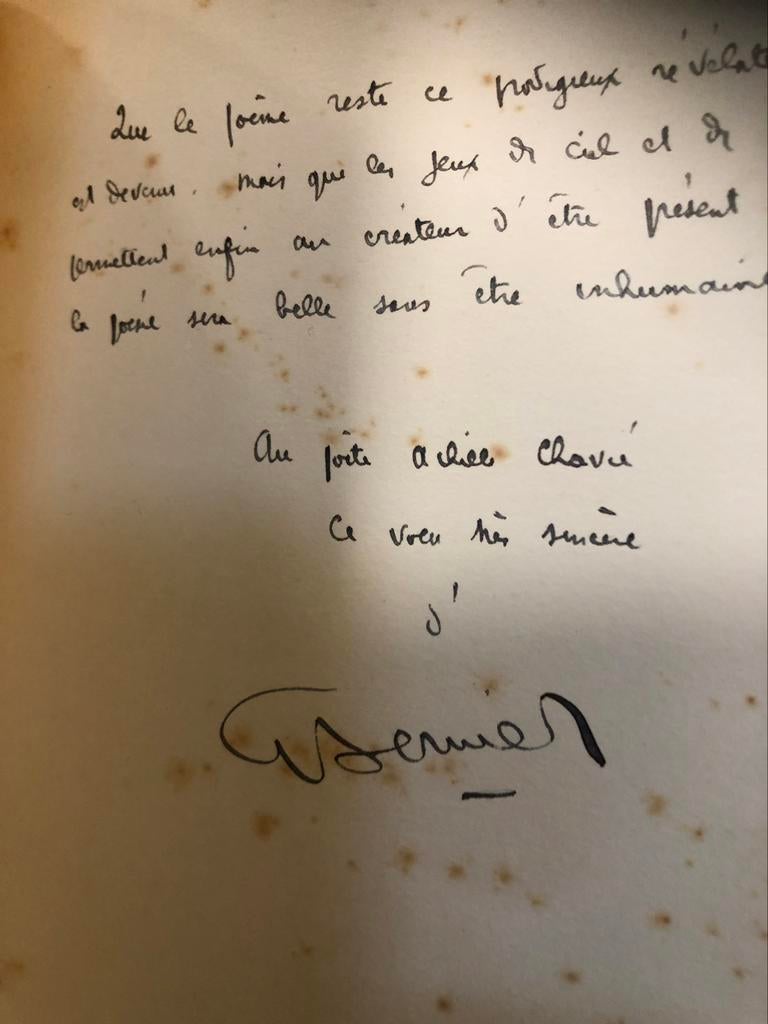 Que le poème reste ce prodigieux révélat
est devenu. mais que les jeux de ciel et de
permettent enfin au créateur d'être présent
la poésie sera belle sans être inhumaine
Au poète Achille Chavée
Ce voeu très sincère
d'
Bernier